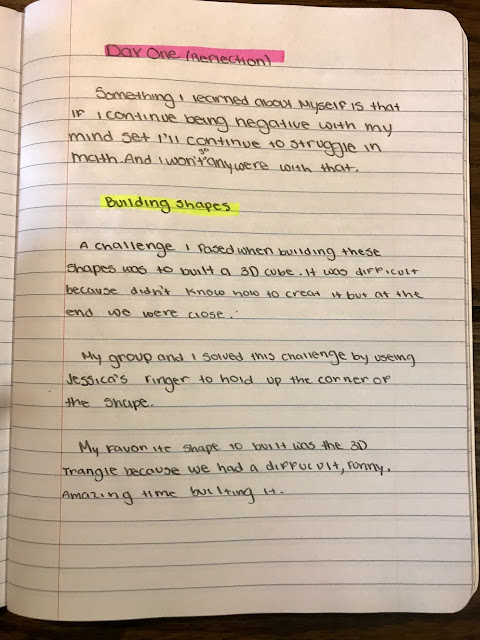 Day One (Reflection)
Something I learned about Myself is that
if I continue being negative with my
mind set I'll continue to struggle in
math. And I won't go anywere with that.
Building shapes
A challenge I fased when building these
shapes was to built a 3D cube. It was difficult
because didn't know how to creat it but at the
end we were close.
My group and I solved this challenge by useing
Jessica's finger to hold up the corner of
the shape.
My favorite shape to built was the 3D
Triangle because we had a diffucult, funny,
Amazing time builting it.